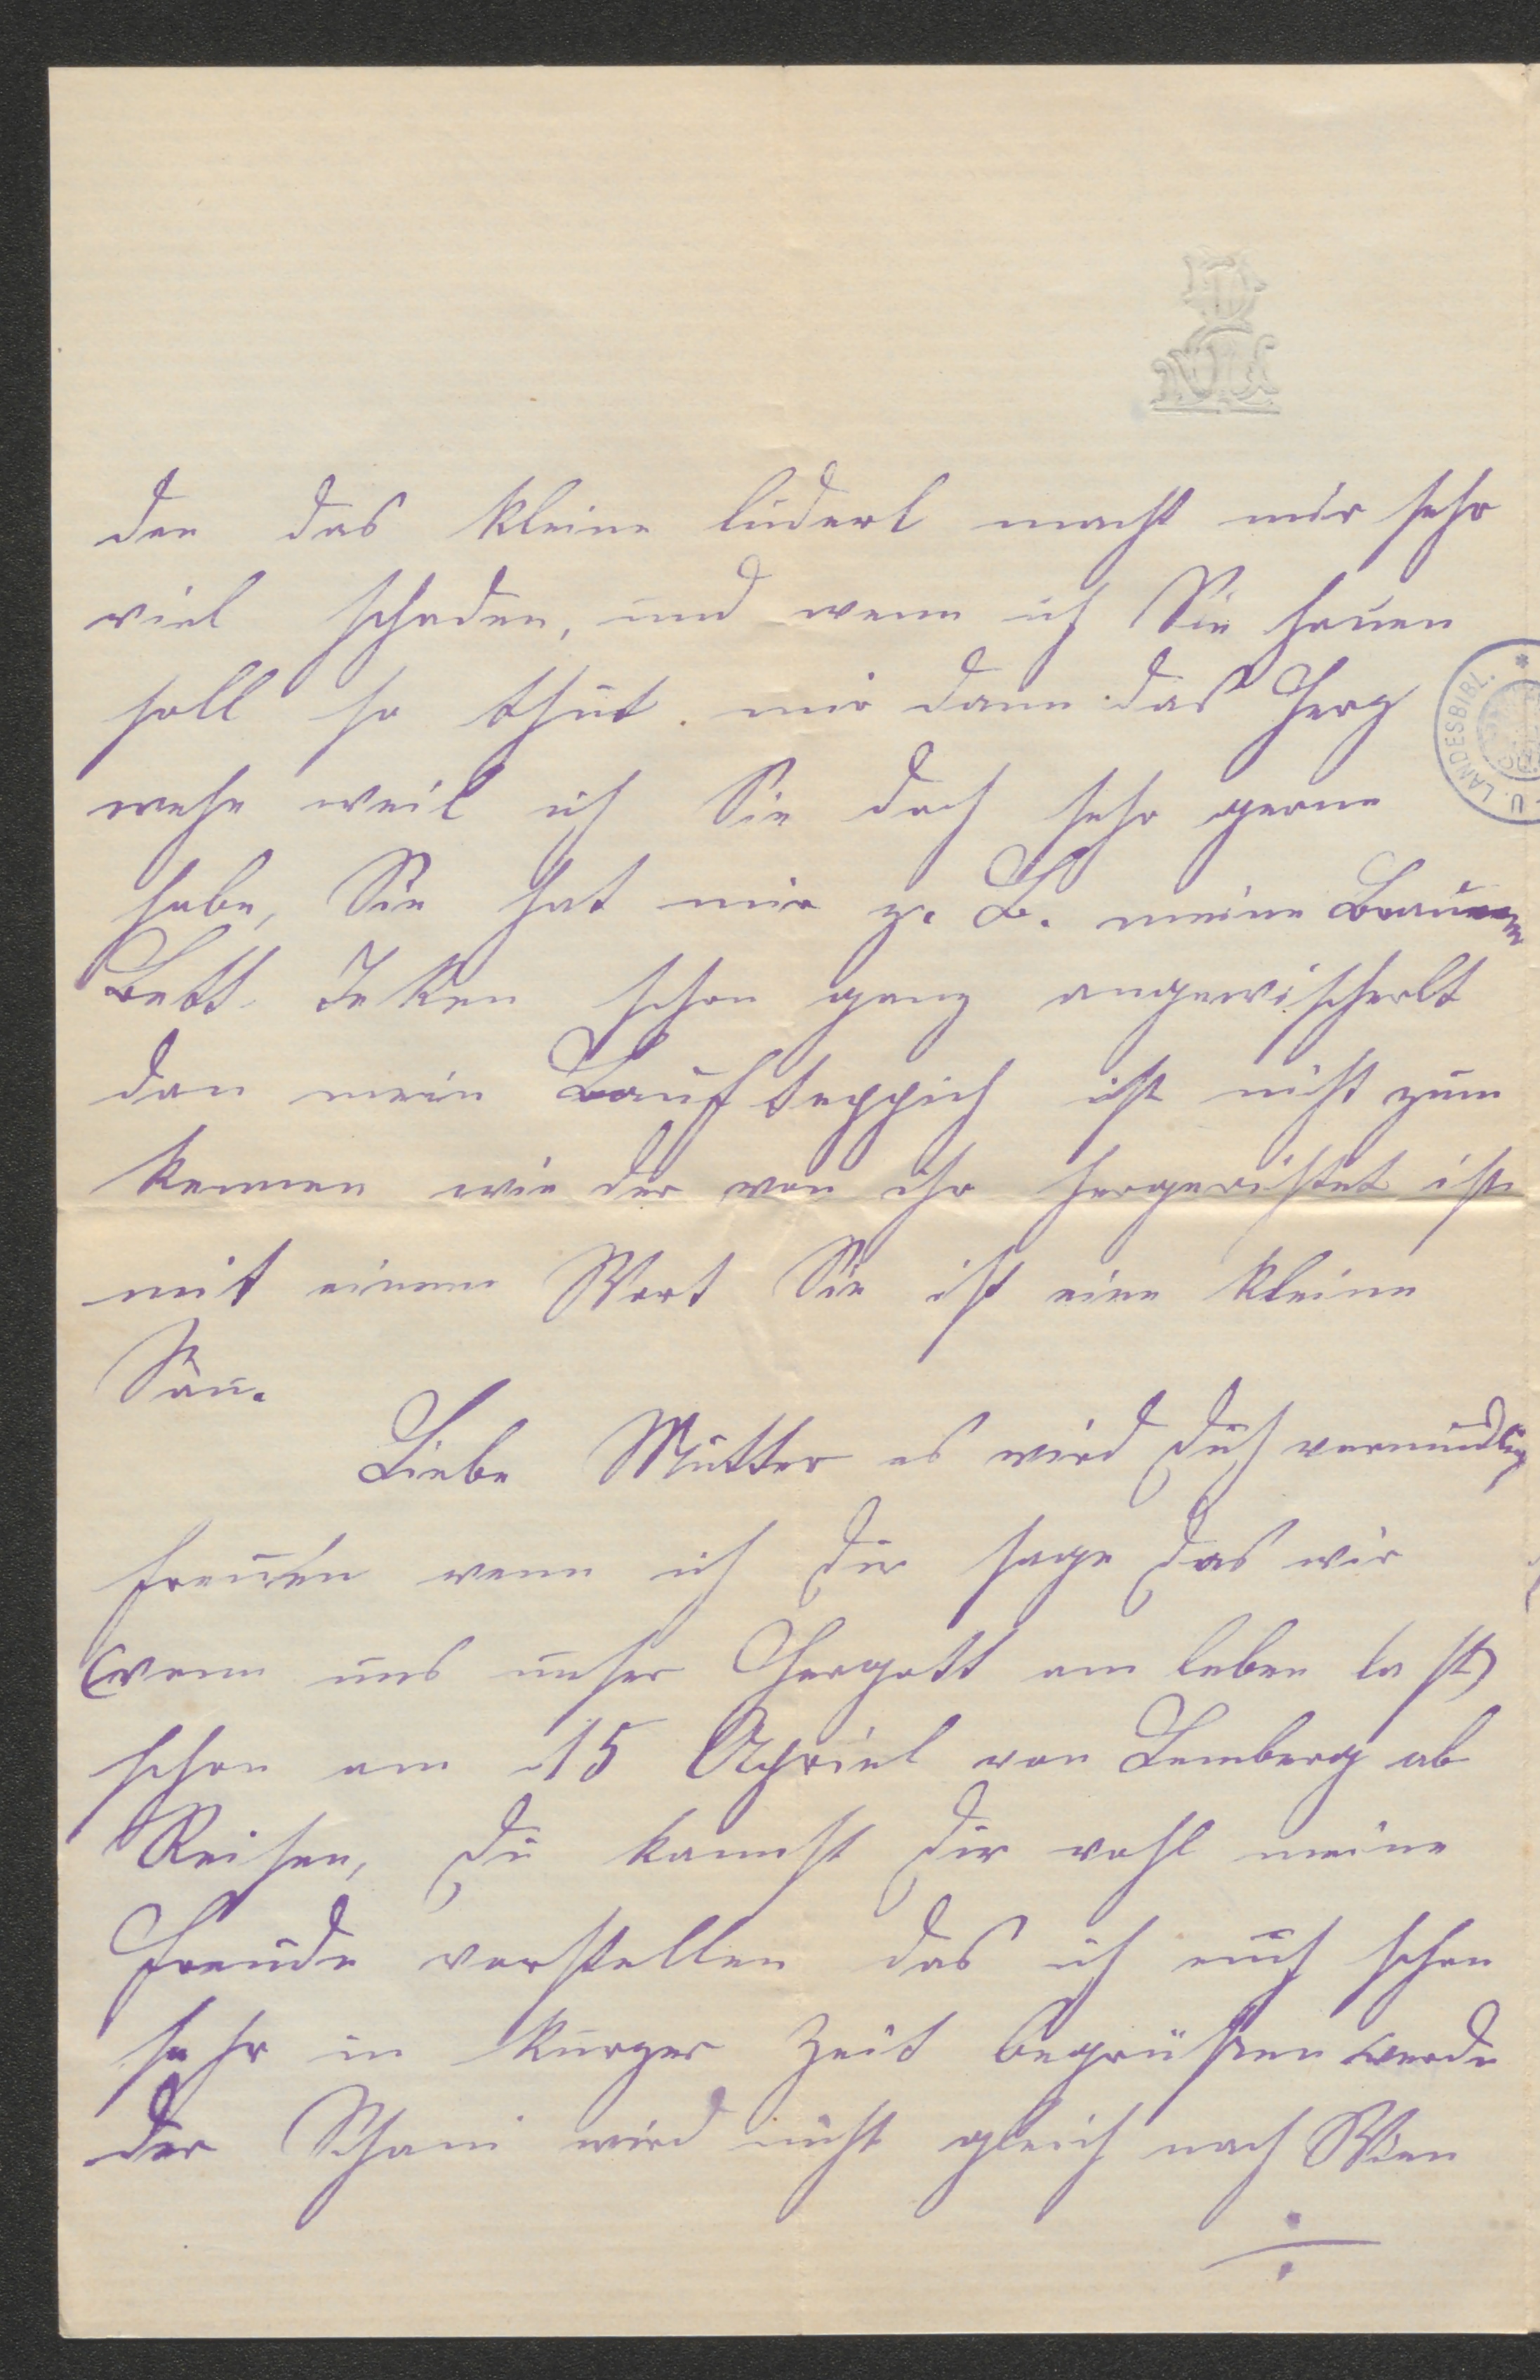 den das kleine luderl macht mir sehr
viel schaden, und wenn ich Sie hauen
soll so thut mir dann das Herz
wehe weil ich Sie doch sehr gerne
habe, Sie hat mir z. B. meine Braunen
Bett Deken schon ganz angewischerlt
dan mein Lauf teppich ist nicht zum
kennen wie der von ihr hergerichtet ist
mit einem Wort Sie ist eine kleine
Sau.
Liebe Mutter es wird Dich
freuen wenn ich Dir sage das wir
(wenn uns unser Hergott am leben last)
schon am 15 Apriel von Lemberg ab
Reisen, Du kannst Dir wohl meine
Freude vorstellen das ich euch schon
sehr in kurzer Zeit begrüßen werde
der Schani wird nicht gleich nach Wien
U. LANDESBIBL. *